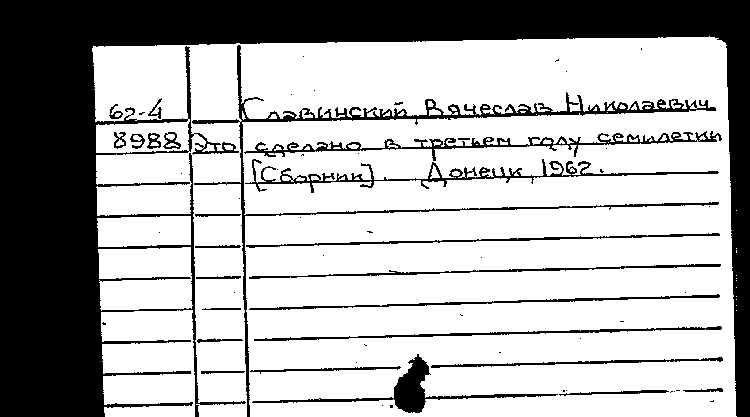 62-4 Славинский, Вячеслав Николаевич
8988 Это сделано в третьем году семилетки
[Сборник]. Донецк, 1962.